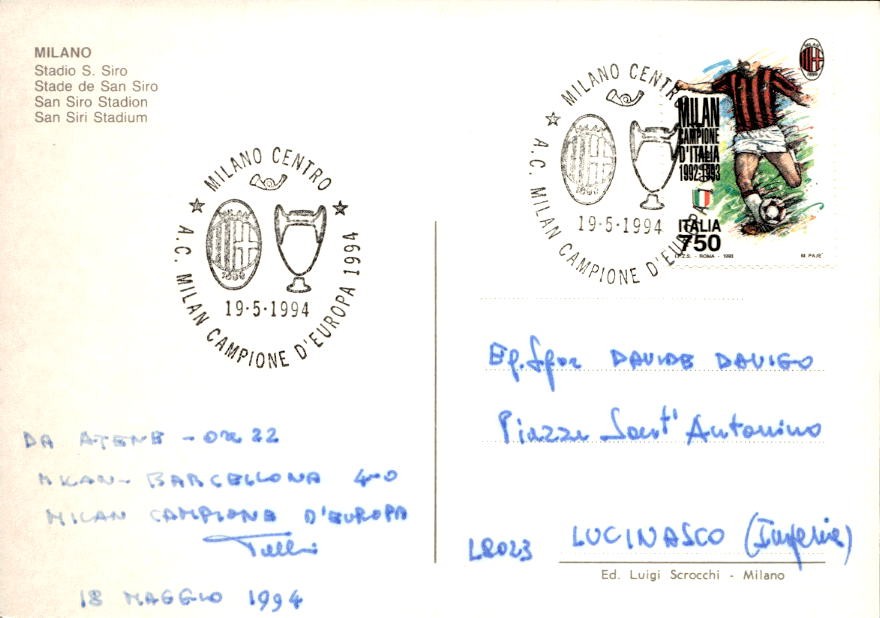 MILANO
Stadio S. Siro
Stade de San Siro
San Siro Stadion
San Siri Stadium
MILANO CENTRO
A.C. MILAN CAMPIONE D'EUROPA 1994
1899
19·5·1994
MILANO CENTR
A.C. MILAN CAMPIONE D'EUROPA
1899
19·5·1994
MILAN
CAMPIONE
D'ITALIA
1992-1993
ITALIA
750
I.P.Z.S. - ROMA - 1993
M. PAJE'
DA ATENE - ORE 22
MILAN - BARCELLONA 4-0
MILAN CAMPIONE D'EUROPA
18 MAGGIO 1994
Eg. Sgor DAVIDE DAVIGO
Piazza Sant' Antonino
18023 LUCINASCO (Imperia)
Ed. Luigi Scrocchi - Milano